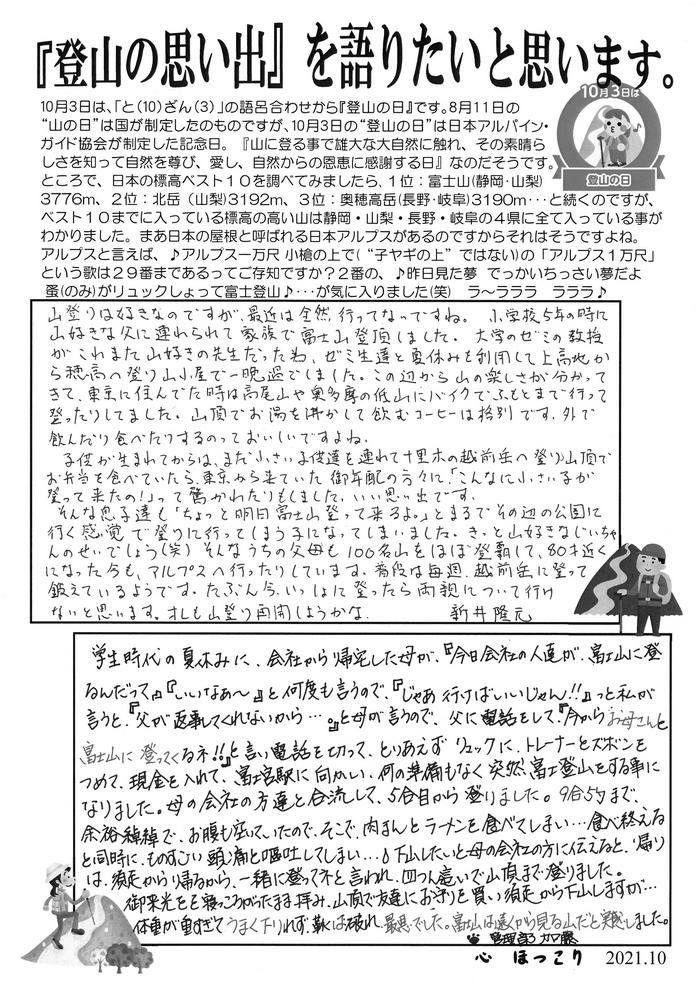 『登山の思い出』を語りたいと思います。
10月3日は、「と(10)ざん(3)」の語呂合わせから『登山の日』です。8月11日の
“山の日”は国が制定したのものですが、10月3日の“登山の日”は日本アルパイン・
ガイド協会が制定した記念日。『山に登る事で雄大な大自然に触れ、その素晴ら
しさを知って自然を尊び、愛し、自然からの恩恵に感謝する日』なのだそうです。
ところで、日本の標高ベスト10を調べてみましたら、1位：富士山(静岡・山梨)
3776m、2位：北岳（山梨)3192m、3位：奥穂高岳(長野・岐阜)3190m・・・と続くのですが、
ベスト10までに入っている標高の高い山は静岡・山梨・長野・岐阜の4県に全て入っている事が
わかりました。まあ日本の屋根と呼ばれる日本アルプスがあるのですからそれはそうですよね。
アルプスと言えば、♪アルプス一万尺 小槍の上で(“子ヤギの上”ではない)の「アルプス1万尺」
という歌は29番まであるってご存知ですか？2番の、♪昨日見た夢 でっかいちっさい夢だよ
蚤(のみ)がリュックしょって富士登山♪・・・が気に入りました(笑) ラ～ラララ ラララ♪
10月3日は
登山の日
山登りは好きなのですが、最近は全然、行ってないですね。 小学校5年の時に
山好きな父に連れられて家族で富士山登頂しました。大学のゼミの教授
がこれまた山好きの先生だったわ、ゼミ生達と夏休みを利用して上高地か
ら穂高へ登り山小屋で一晩過ごしました。この辺から山の楽しさが分かって
きて、東京に住んでた時は高尾山や奥多摩の低山にバイクでふもとまで行って
登ったりしてました。山頂でお湯を沸かして飲むコーヒーは格別です。外で
飲んだり食べたりするのっておいしいですよね。
子供が生まれてからは、まだ小さい子供達を連れて十里木の越前岳へ登り山頂で
お弁当を食べていたら、東京から来ていた御年配の方々に、「こんなに小さい子が
登って来たの！」って驚かれたりもしました、いい思い出です。
そんな息子達も「ちょっと明日富士山登って来るよ。」とまるでその辺の公園に
行く感覚で登りに行ってしまう子になってしまいました。きっと山好きなじいちゃ
んのせいでしょう(笑) そんなうちの父母も100名山をほぼ登覇して、80才近く
になった今も、アルプスへ行ったりしています。普段は毎週、越前岳に登って
鍛えているようです。たぶん今、いっしょに登ったら両親について行け
ないと思います。オレも山登り再開しようかな。 新井隆元
学生時代の夏休みに、会社から帰宅した母が、『今日会社の人達が、富士山に登
るんだって』『いいなぁ～』と何度も言うので、『じゃあ行けばいいじゃん!!』っと私が
言うと、『父が返事してくれないから…。』と母が言うので、父に電話をして、『今からお母さんと
富士山に登ってくるネ!!』と言い電話を切って、とりあえずリュックに、トレーナーとズボンを
つめて、現金を入れて、富士宮駅に向かい、何の準備もなく突然、富士登山をする事に
なりました。母の会社の方達と合流して、5合目から登りました。9合5勺まで、
余裕綽綽で、お腹も空いていたので、そこで、肉まんとラーメンを食べてしまい…食べ終える
と同時に、ものすごい頭痛と嘔吐してしまい…♪下山したいと母の会社の方に伝えると、帰り
は、須走から帰るから、一緒に登ってネと言われ、四つん這いで山頂まで登りました。
御来光をを寝っころがったまま拝み、山頂で友達にお守りを買い須走から下山しますが…
体重が重すぎてうまく下りれず、靴は破れ、最悪でした。富士山は遠くから見る山だと実感しました。
管理部 加藤
心 ほっこり 2021.10